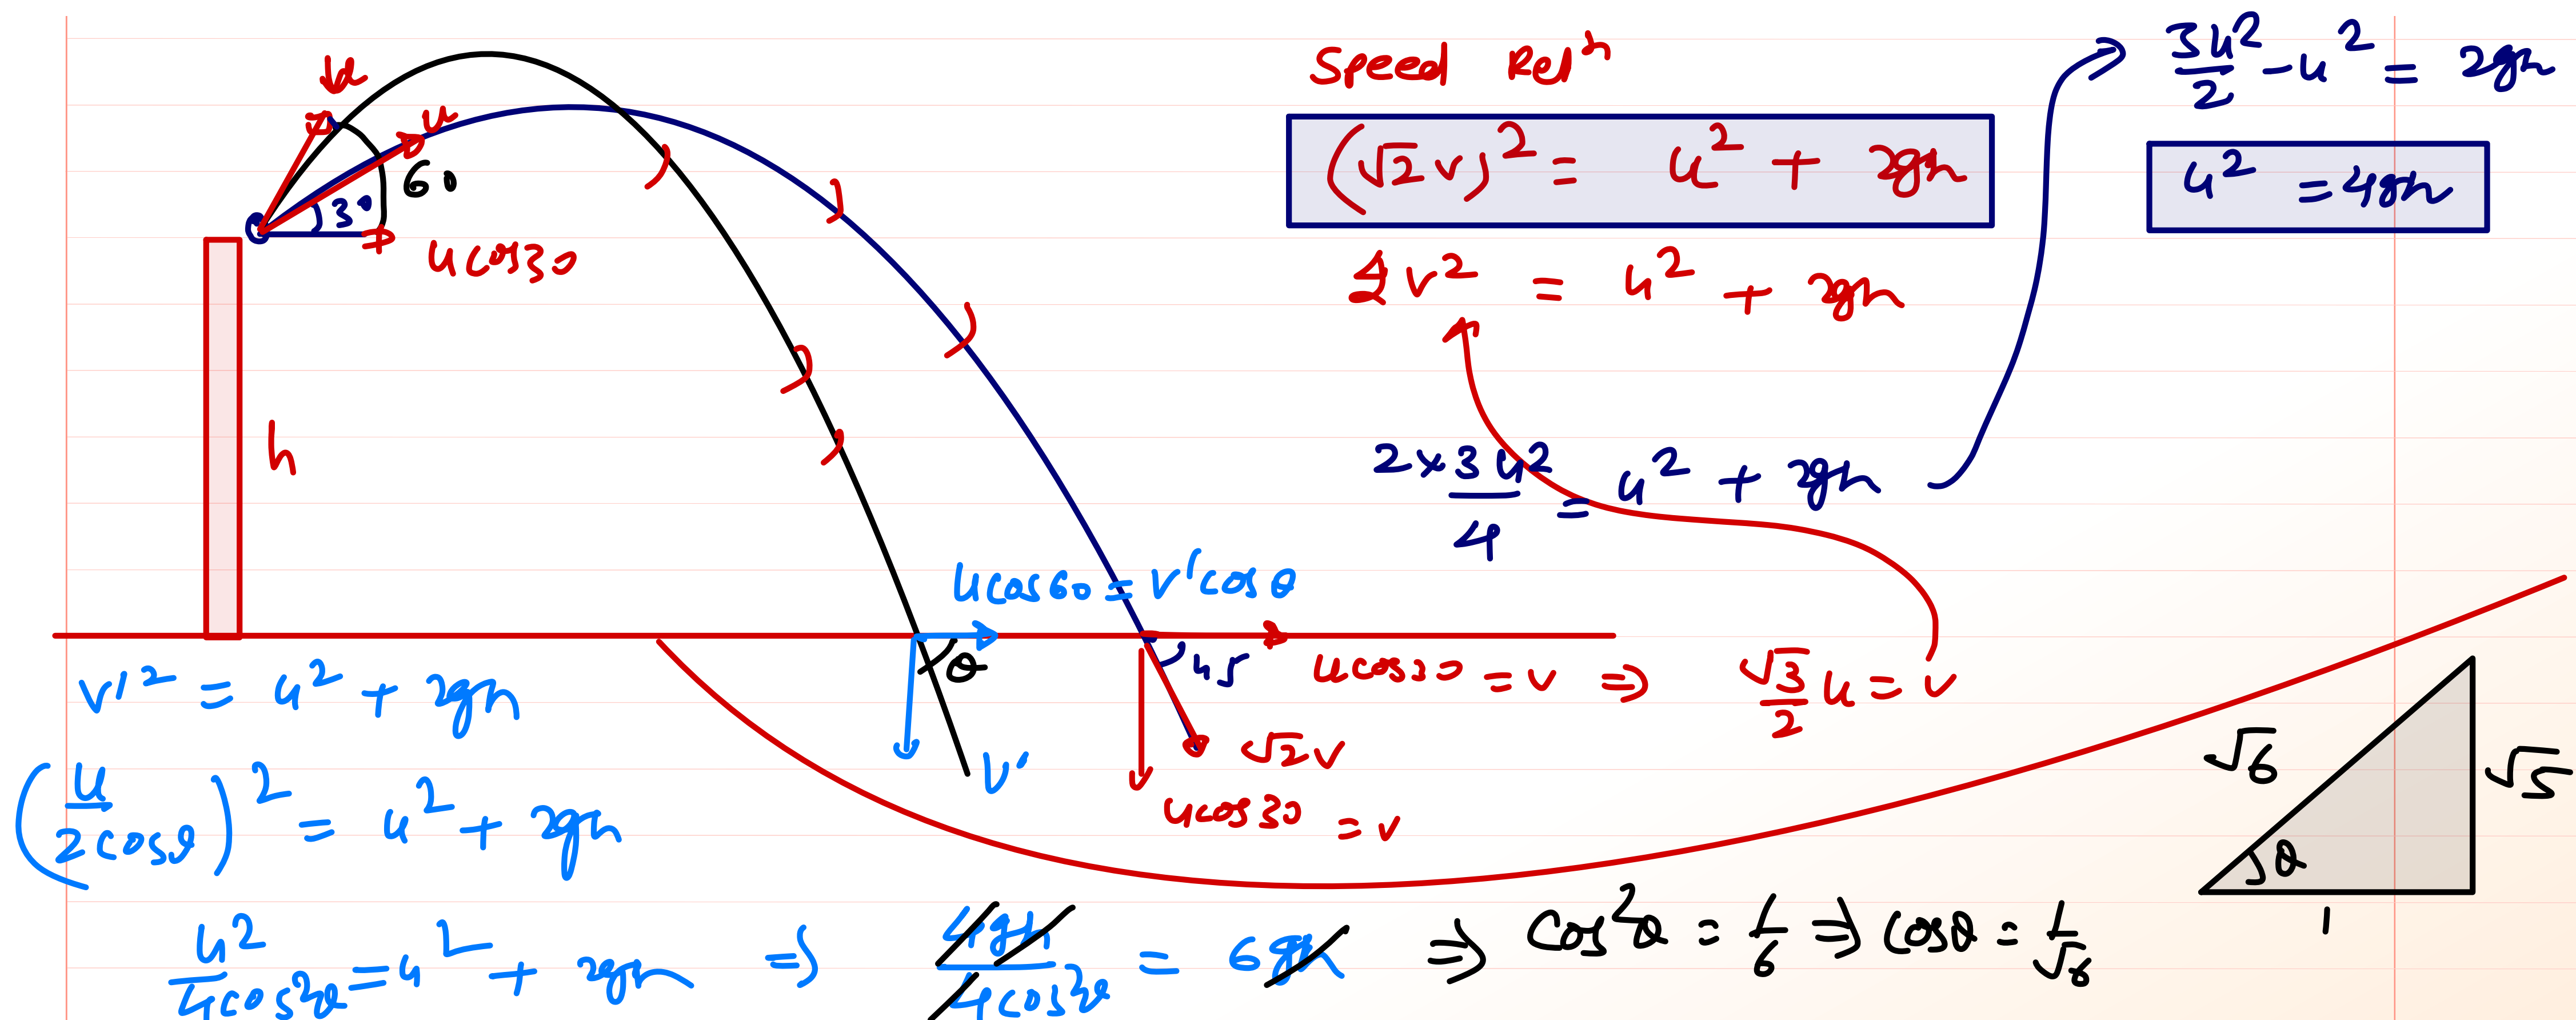 Speed Relⁿ
(√2 v)² = u² + 2gh
2v² = u² + 2gh
2×3u²/4 = u² + 2gh
3u²/2 - u² = 2gh
u² = 4gh
u
u
60
30
u cos30
h
u cos60 = v' cos θ
θ
v'
45
u cos30 = v ⇒ √3/2 u = v
√2v
u cos30 = v
v'² = u² + 2gh
(u/2cosθ)² = u² + 2gh
u²/4cos²θ = u² + 2gh ⇒ 4gh/4cos²θ = 6gh ⇒ cos²θ = 1/6 ⇒ cosθ = 1/√6
√6
√5
θ
1